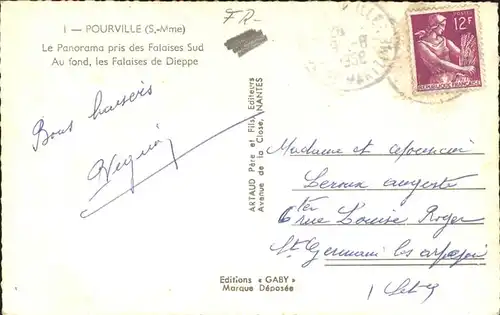 FR-
1 — POURVILLE (S.-Mme)
Le Panorama pris des Falaises Sud
Au fond, les Falaises de Dieppe
Bons baisers
ARTAUD Père et Fils, Editeurs
Avenue de la Close, NANTES
POSTES
12F
REPUBLIQUE FRANÇAISE
Madame et Monsieur
Leroux auguste
6 ter rue Louise Roger
St Germain les arpajon
Editions « GABY »
Marque Déposée